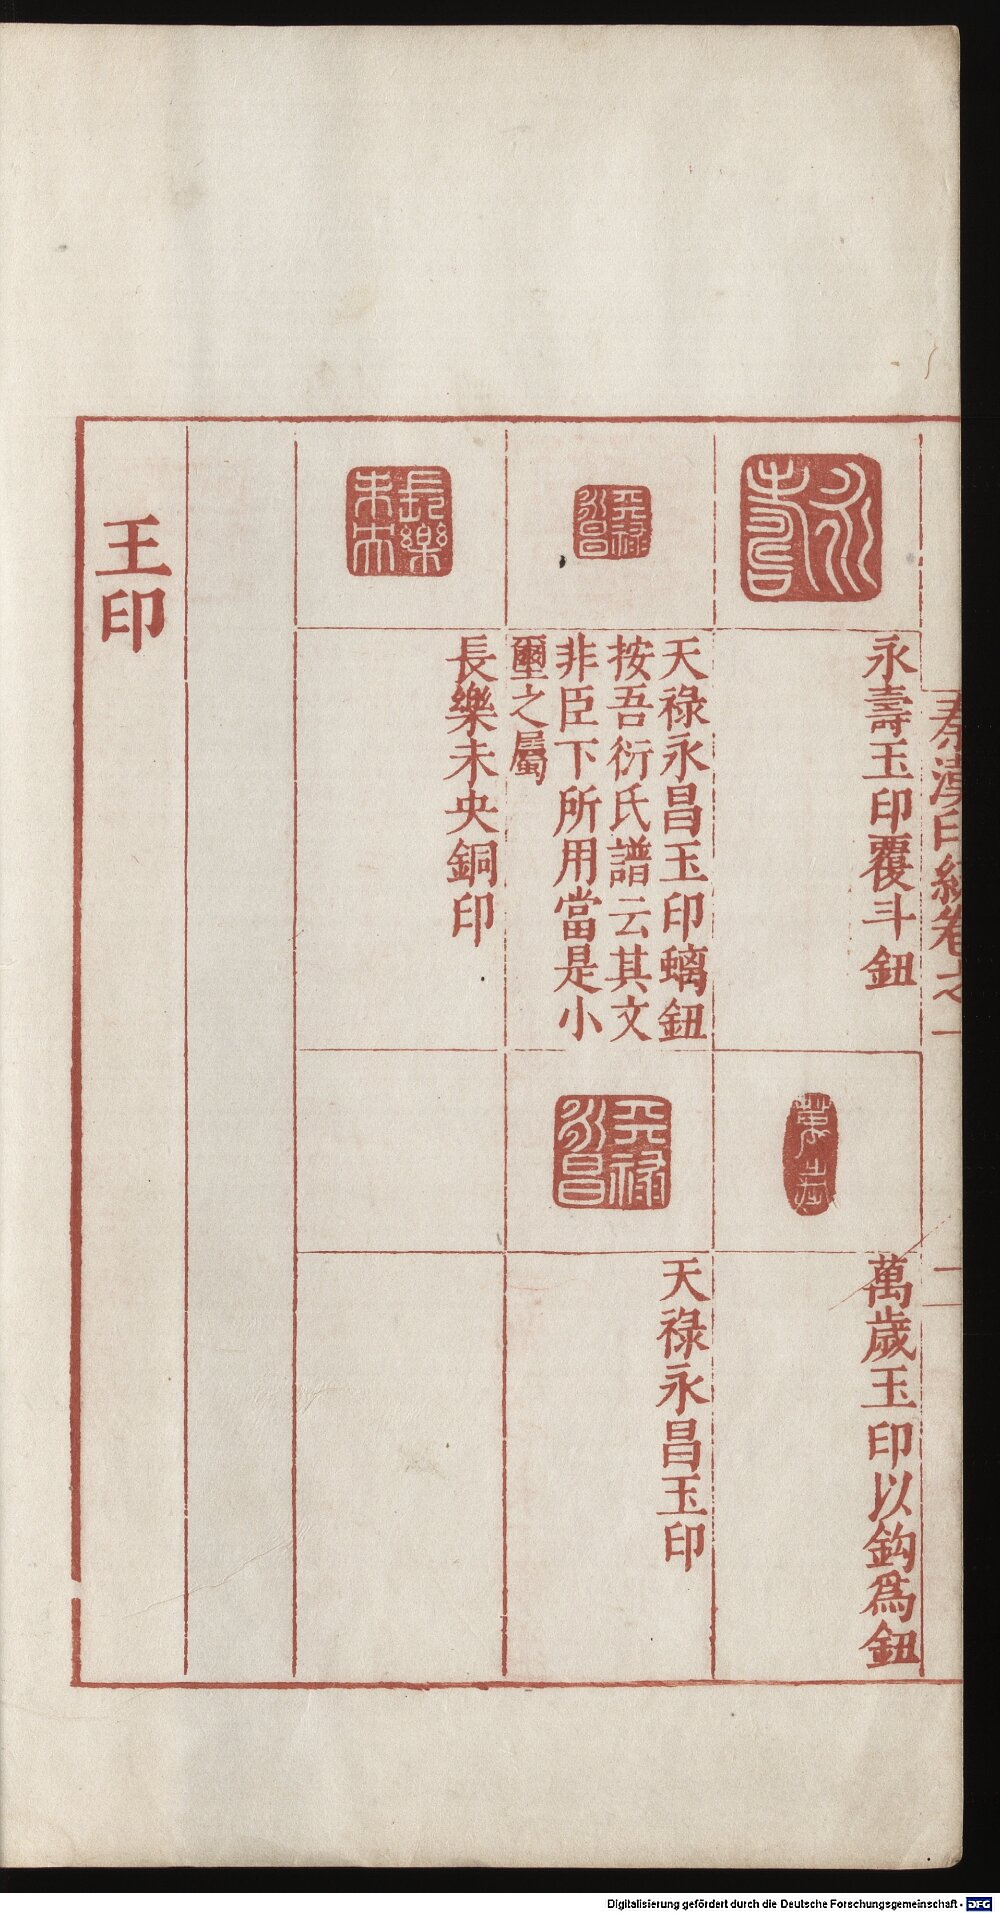 秦漢印統卷之一
永壽
永壽玉印覆斗鈕
萬歲
萬歲玉印以鈎爲鈕
天祿永昌
天祿永昌玉印螭鈕
按吾衍氏譜云其文
非臣下所用當是小
璽之屬
天祿永昌
天祿永昌玉印
長樂未央
長樂未央銅印
王印
Digitalisierung gefördert durch die Deutsche Forschungsgemeinschaft - DFG